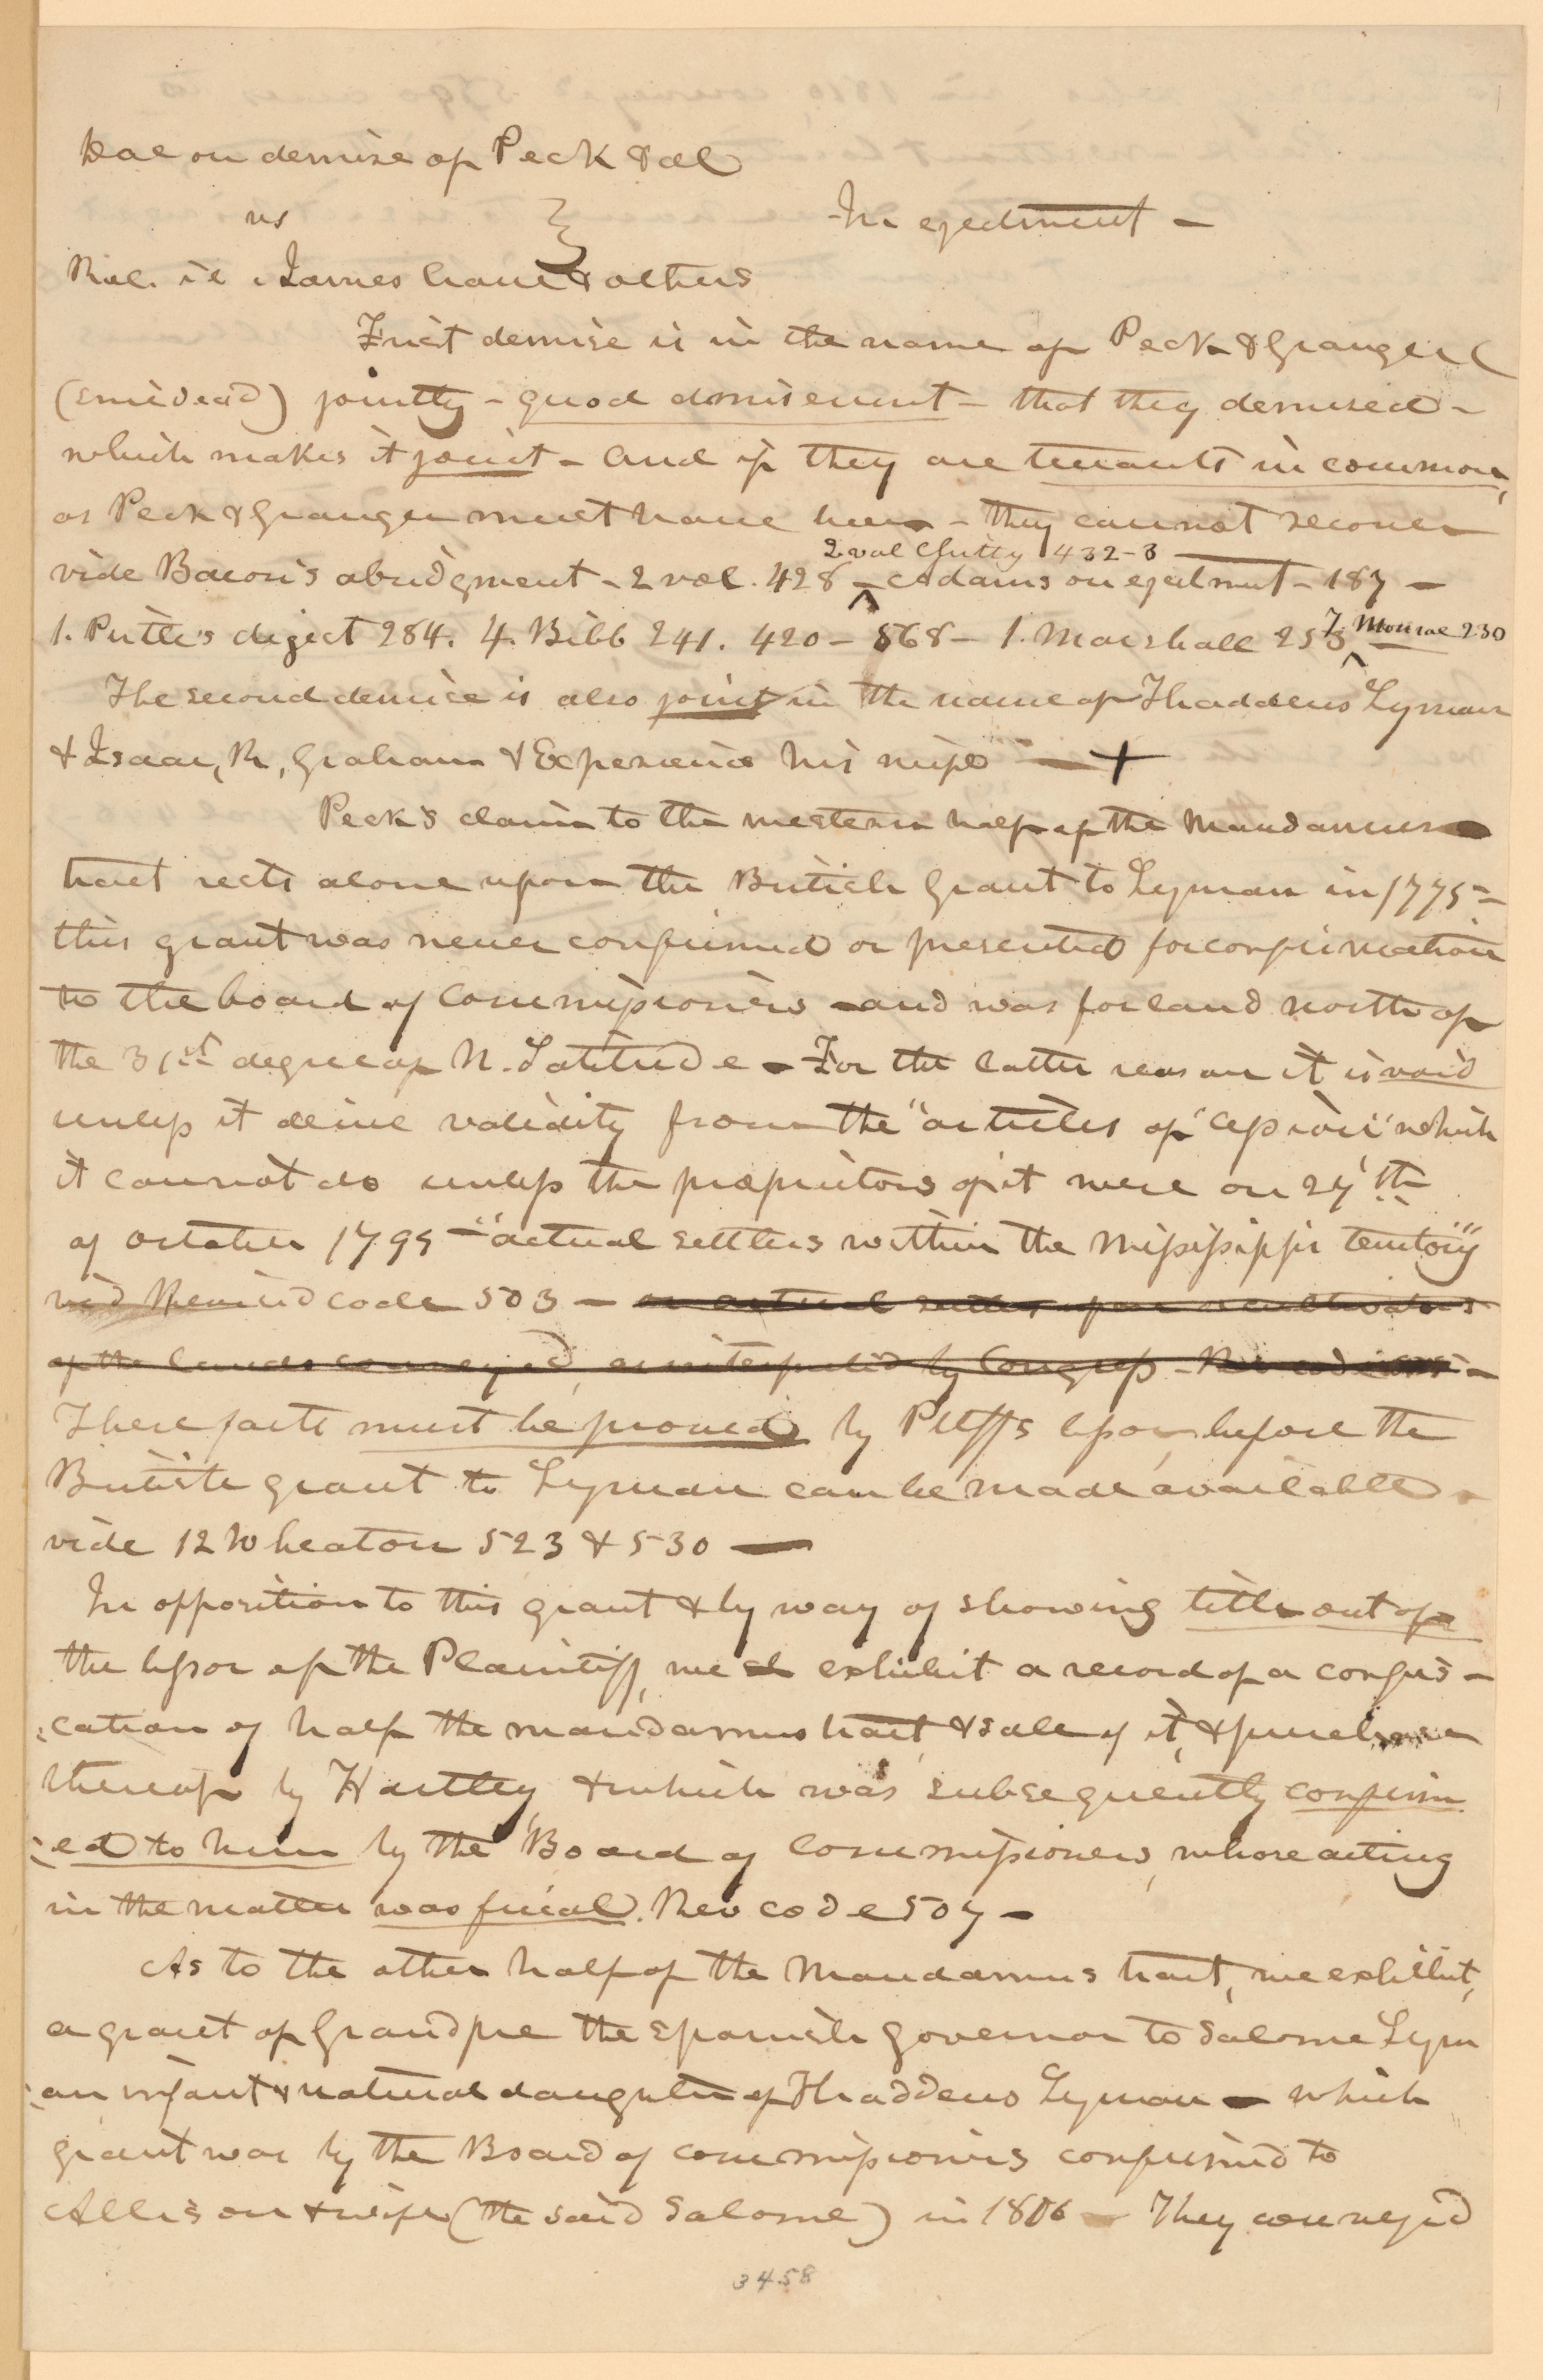 Doe on demise of Peck & al
vs } In ejectment -
Roe. i e James Cane & others
First demise is in the name of Peck & Granger
(since dead) jointly - quod dimiserunt - that they demised -
which makes it joint - and if they are tenants in common,
as Peck & Granger must have been - they cannot recover
2 vol Chitty 432-3
vide Bacon's abridgment - 2 vol. 428 ^ Adams on ejectment - 187 -
1. Pirtle's digest 284. 4. Bibb 241. 420 - 568 - 1. Marshall 253 ^ 7. Monroe 230
The second demise is also joint in the name of Thaddeus Lyman
& Isaac, R, Graham & Experience his wife - +
Peck's claim to the western half of the Mandamus
tract rests alone upon the British grant to Lyman in 1775 -
this grant was never confirmed or presented for confirmation
to the board of Commissioners - and was for land north of
the 31st degree of N. Latitude - For the latter reason it is void
unless it derive validity from the "articles of "cession" which
it cannot do unless the proprietors of it were on 27th
of october 1795 - "actual settlers within the Mississippi territory"
vid Revised code 503 - or actual settlers upon or cultivators
of the lands conveyed, as interpreted by Congress -
These facts must be proved by Pltffs lessor before the
British grant to Lyman can be made available -
vide 12 Wheaton 523 & 530 -
In opposition to this grant & by way of showing title out of
the lessor of the Plaintiff, we exhibit a record of a confis-
:cation of half the mandamus tract & sale of it, & purchase
thereof by Hartley & which was subsequently confirm
:ed to him by the Board of Commissioners, whose acting
in the matter was final. Rev code 507 -
As to the other half of the Mandamus tract, we exhibit,
a grant of Grandpre the Spanish governor to Salome Lym
:an infant & natural daughter of Thaddeus Lyman - which
grant was by the Board of commissioners confirmed to
Allison & wife (the said Salome) in 1806 - They conveyed
3458